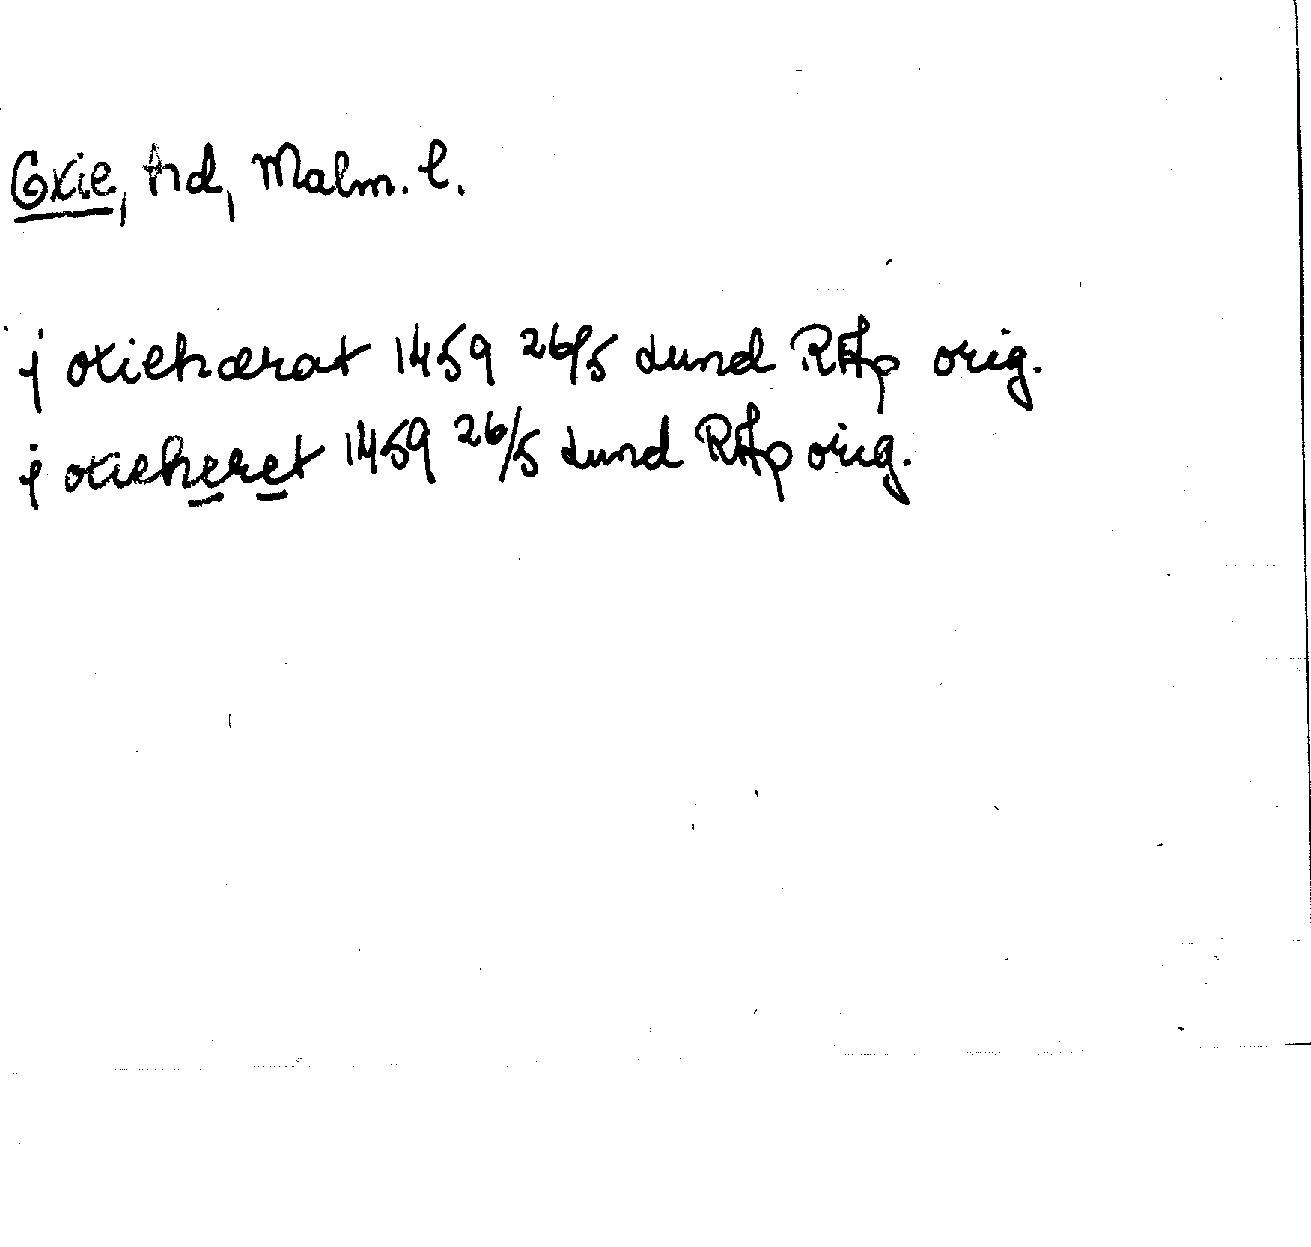 Oxie, hd, Malm. l.
j oxiehærat 1459 26/5 Lund RAp orig.
j oxieheret 1459 26/5 Lund RAp orig.